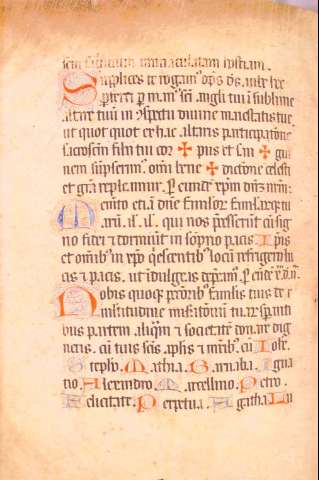 sc̄m sacrificium immaculatam hostiam.
Supplices te rogam᷒ om̄ps ds̄. iube hec
p̄ferri ꝑ man᷒ sc̄i angli tui ī sublime
altare tuū in ↄspectu diuine maiestatis tue
ut quot quot ex hac altaris participatione
sacrosc̄m filii tui cor ✠ pus et sn̄ ✠ gui
nem sūpserim᷒. om̄i bene ✠ dictione celesti
et grā repleamur. ꝑ eundē xp̄m dn̄m nrm̄.
Memento etiā dn̄e famulor famularūqꝫ tu
arū. il. il. qui nos p̄cesserūt cū sig
no fidei et dormiūt in sōpno pacis. Ipīs
et omīb᷒ in xp̄o q̇escentib᷒ locū refrigerii lu
cis et pacis. ut īdulgeas dep̄cam᷒. ꝑ eūdē
Nobis quoqꝫ pccōrib᷒ famulis tuis de m
ultitudine miserationū tuarū speranti
bus partem aliquā et societatē donare dig
neris. cū tuis scīs apl̄is et mrīb᷒. cū Iohe.
Stepħo. Mathia. Barnaba. Igna
tio. Alexandro. Marcellino. Petro.
Felicitate. Perpetua. Agatha. Lu